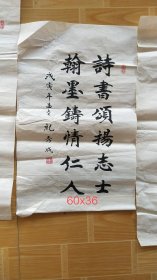 詩書頌揚志士
翰墨鑄情仁人
戊寅年
60x36